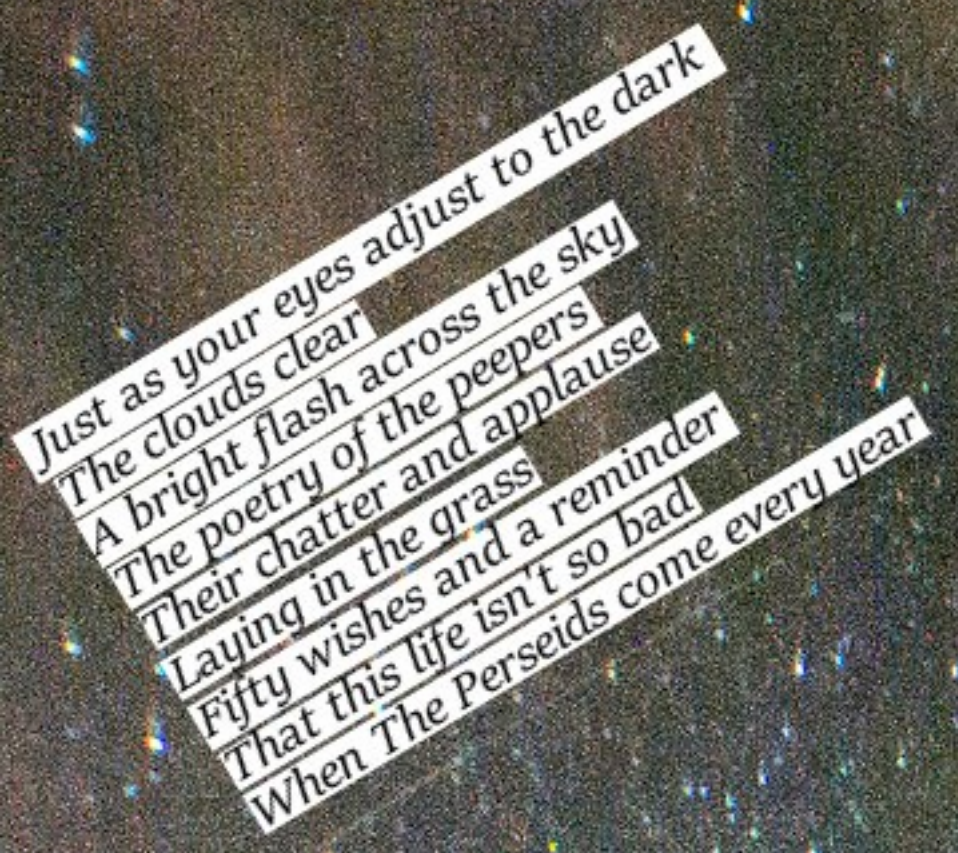 Just as your eyes adjust to the dark
The clouds clear
A bright flash across the sky
The poetry of the peepers
Their chatter and applause
Laying in the grass
Fifty wishes and a reminder
That this life isn't so bad
When The Perseids come every year